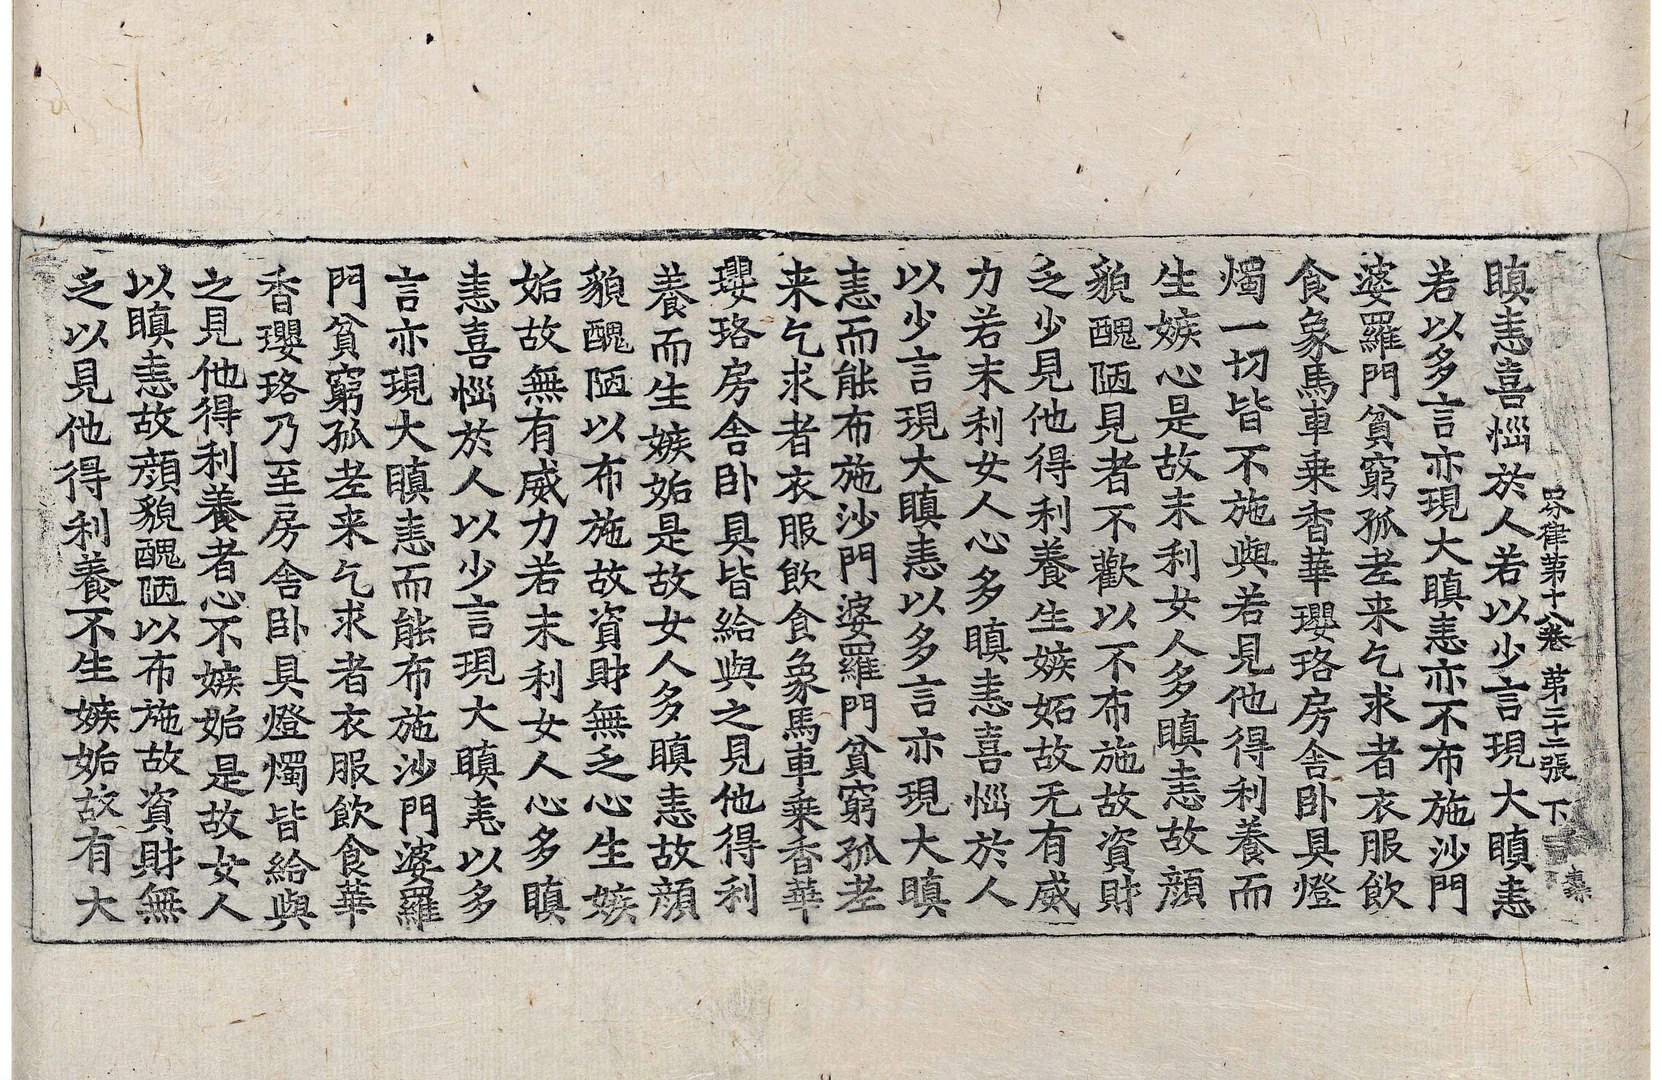 界律第十八卷 第二十二張 下
瞋恚喜惱於人若以少言現大瞋恚
若以多言亦現大瞋恚亦不布施沙門
婆羅門貧窮孤老来乞求者衣服飲
食象馬車乘香華瓔珞房舍卧具燈
燭一切皆不施與若見他得利養而
生嫉心是故末利女人多瞋恚故顏
貌醜陋見者不歡以不布施故資財
乏少見他得利養生嫉妬故无有威
力若末利女人心多瞋恚喜惱於人
以少言現大瞋恚以多言亦現大瞋
恚而能布施沙門婆羅門貧窮孤老
来乞求者衣服飲食象馬車乘香華
瓔珞房舍卧具皆給與之見他得利
養而生嫉妬是故女人多瞋恚故顏
貌醜陋以布施故資財無乏心生嫉
妬故無有威力若末利女人心多瞋
恚喜惱於人以少言現大瞋恚以多
言亦現大瞋恚而能布施沙門婆羅
門貧窮孤老来乞求者衣服飲食華
香瓔珞乃至房舍卧具燈燭皆給與
之見他得利養者心不嫉妬是故女人
以瞋恚故顏貌醜陋以布施故資財無
乏以見他得利養不生嫉妬故有大